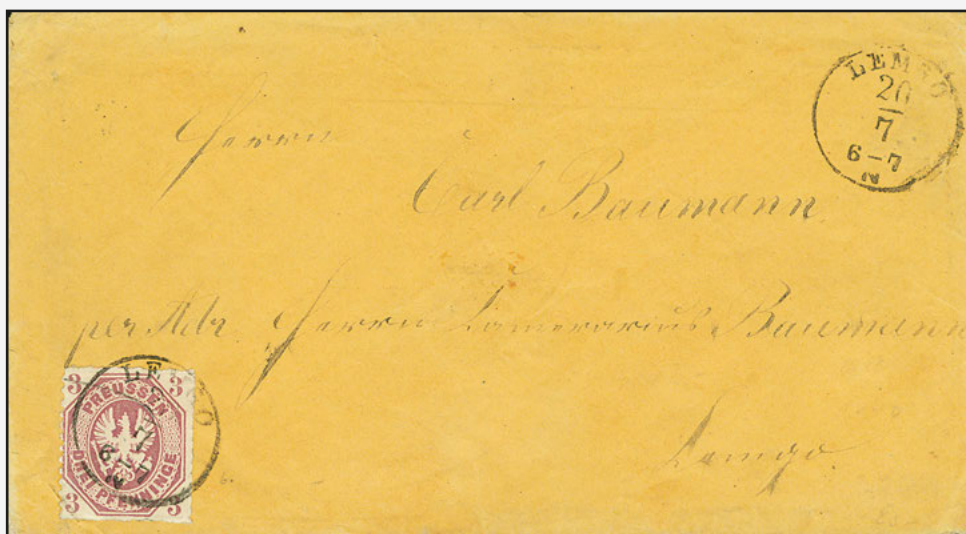 LEMGO
20
7
6-7
N
Herrn
Carl Baumann
per Adr. Herrn Camerarius Baumann
Lemgo.
LEMGO
7
6-7
N
3 3
PREUSSEN
DREI PFENNINGE
3 3